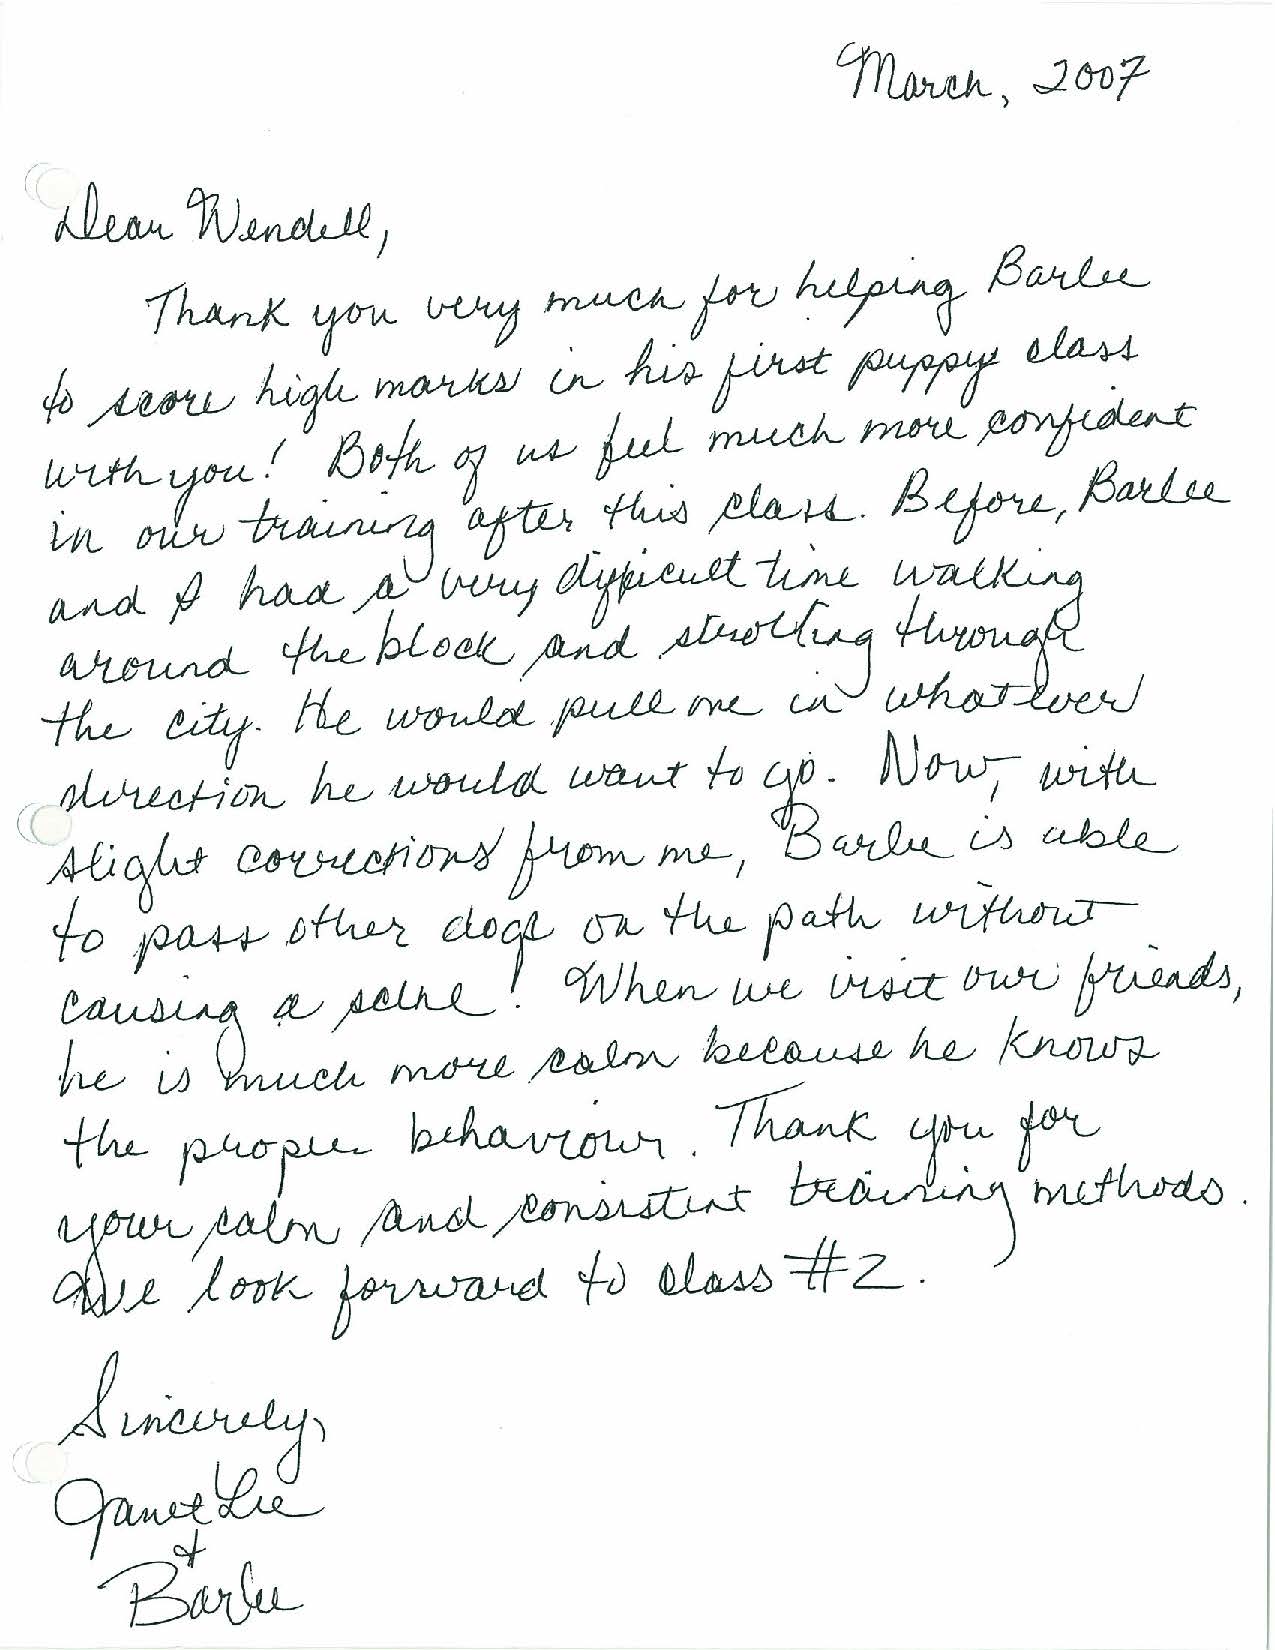 March, 2007
Dear Wendell,
Thank you very much for helping Barlee
to score high marks in his first puppy class
with you! Both of us feel much more confident
in our training after this class. Before, Barlee
and I had a very difficult time walking
around the block and strolling through
the city. He would pull me in whatever
direction he would want to go. Now, with
slight corrections from me, Barlee is able
to pass other dogs on the path without
causing a scene! When we visit our friends,
he is much more calm because he knows
the proper behaviour. Thank you for
your calm and consistent training methods.
We look forward to class #2.
Sincerely,
Janet Lee
+
Barlee